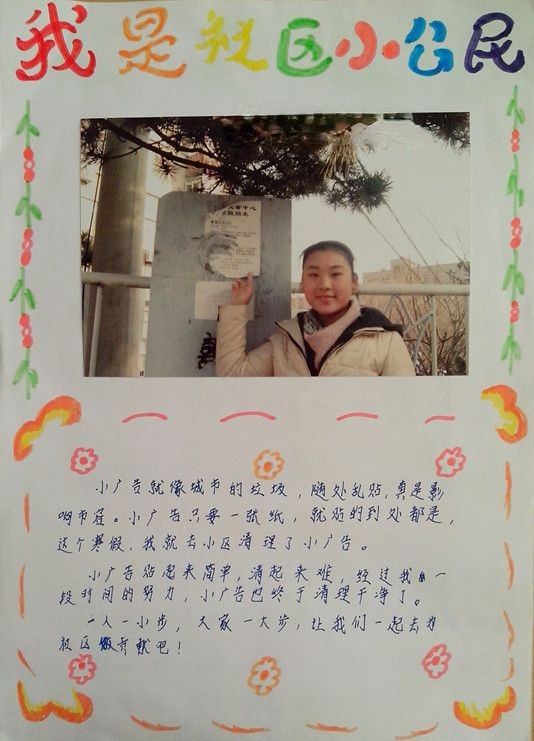 我是社区小公民
小广告就像城市的垃圾，随处乱贴，真是影
响市容。小广告只要一张纸，就贴的到处都是，
这个寒假，我就去小区清理了小广告。
小广告贴起来简单，清起来难，经过我一
段时间的努力，小广告也终于清理干净了。
一人一小步，大家一大步，让我们一起去为
社区做贡献吧！